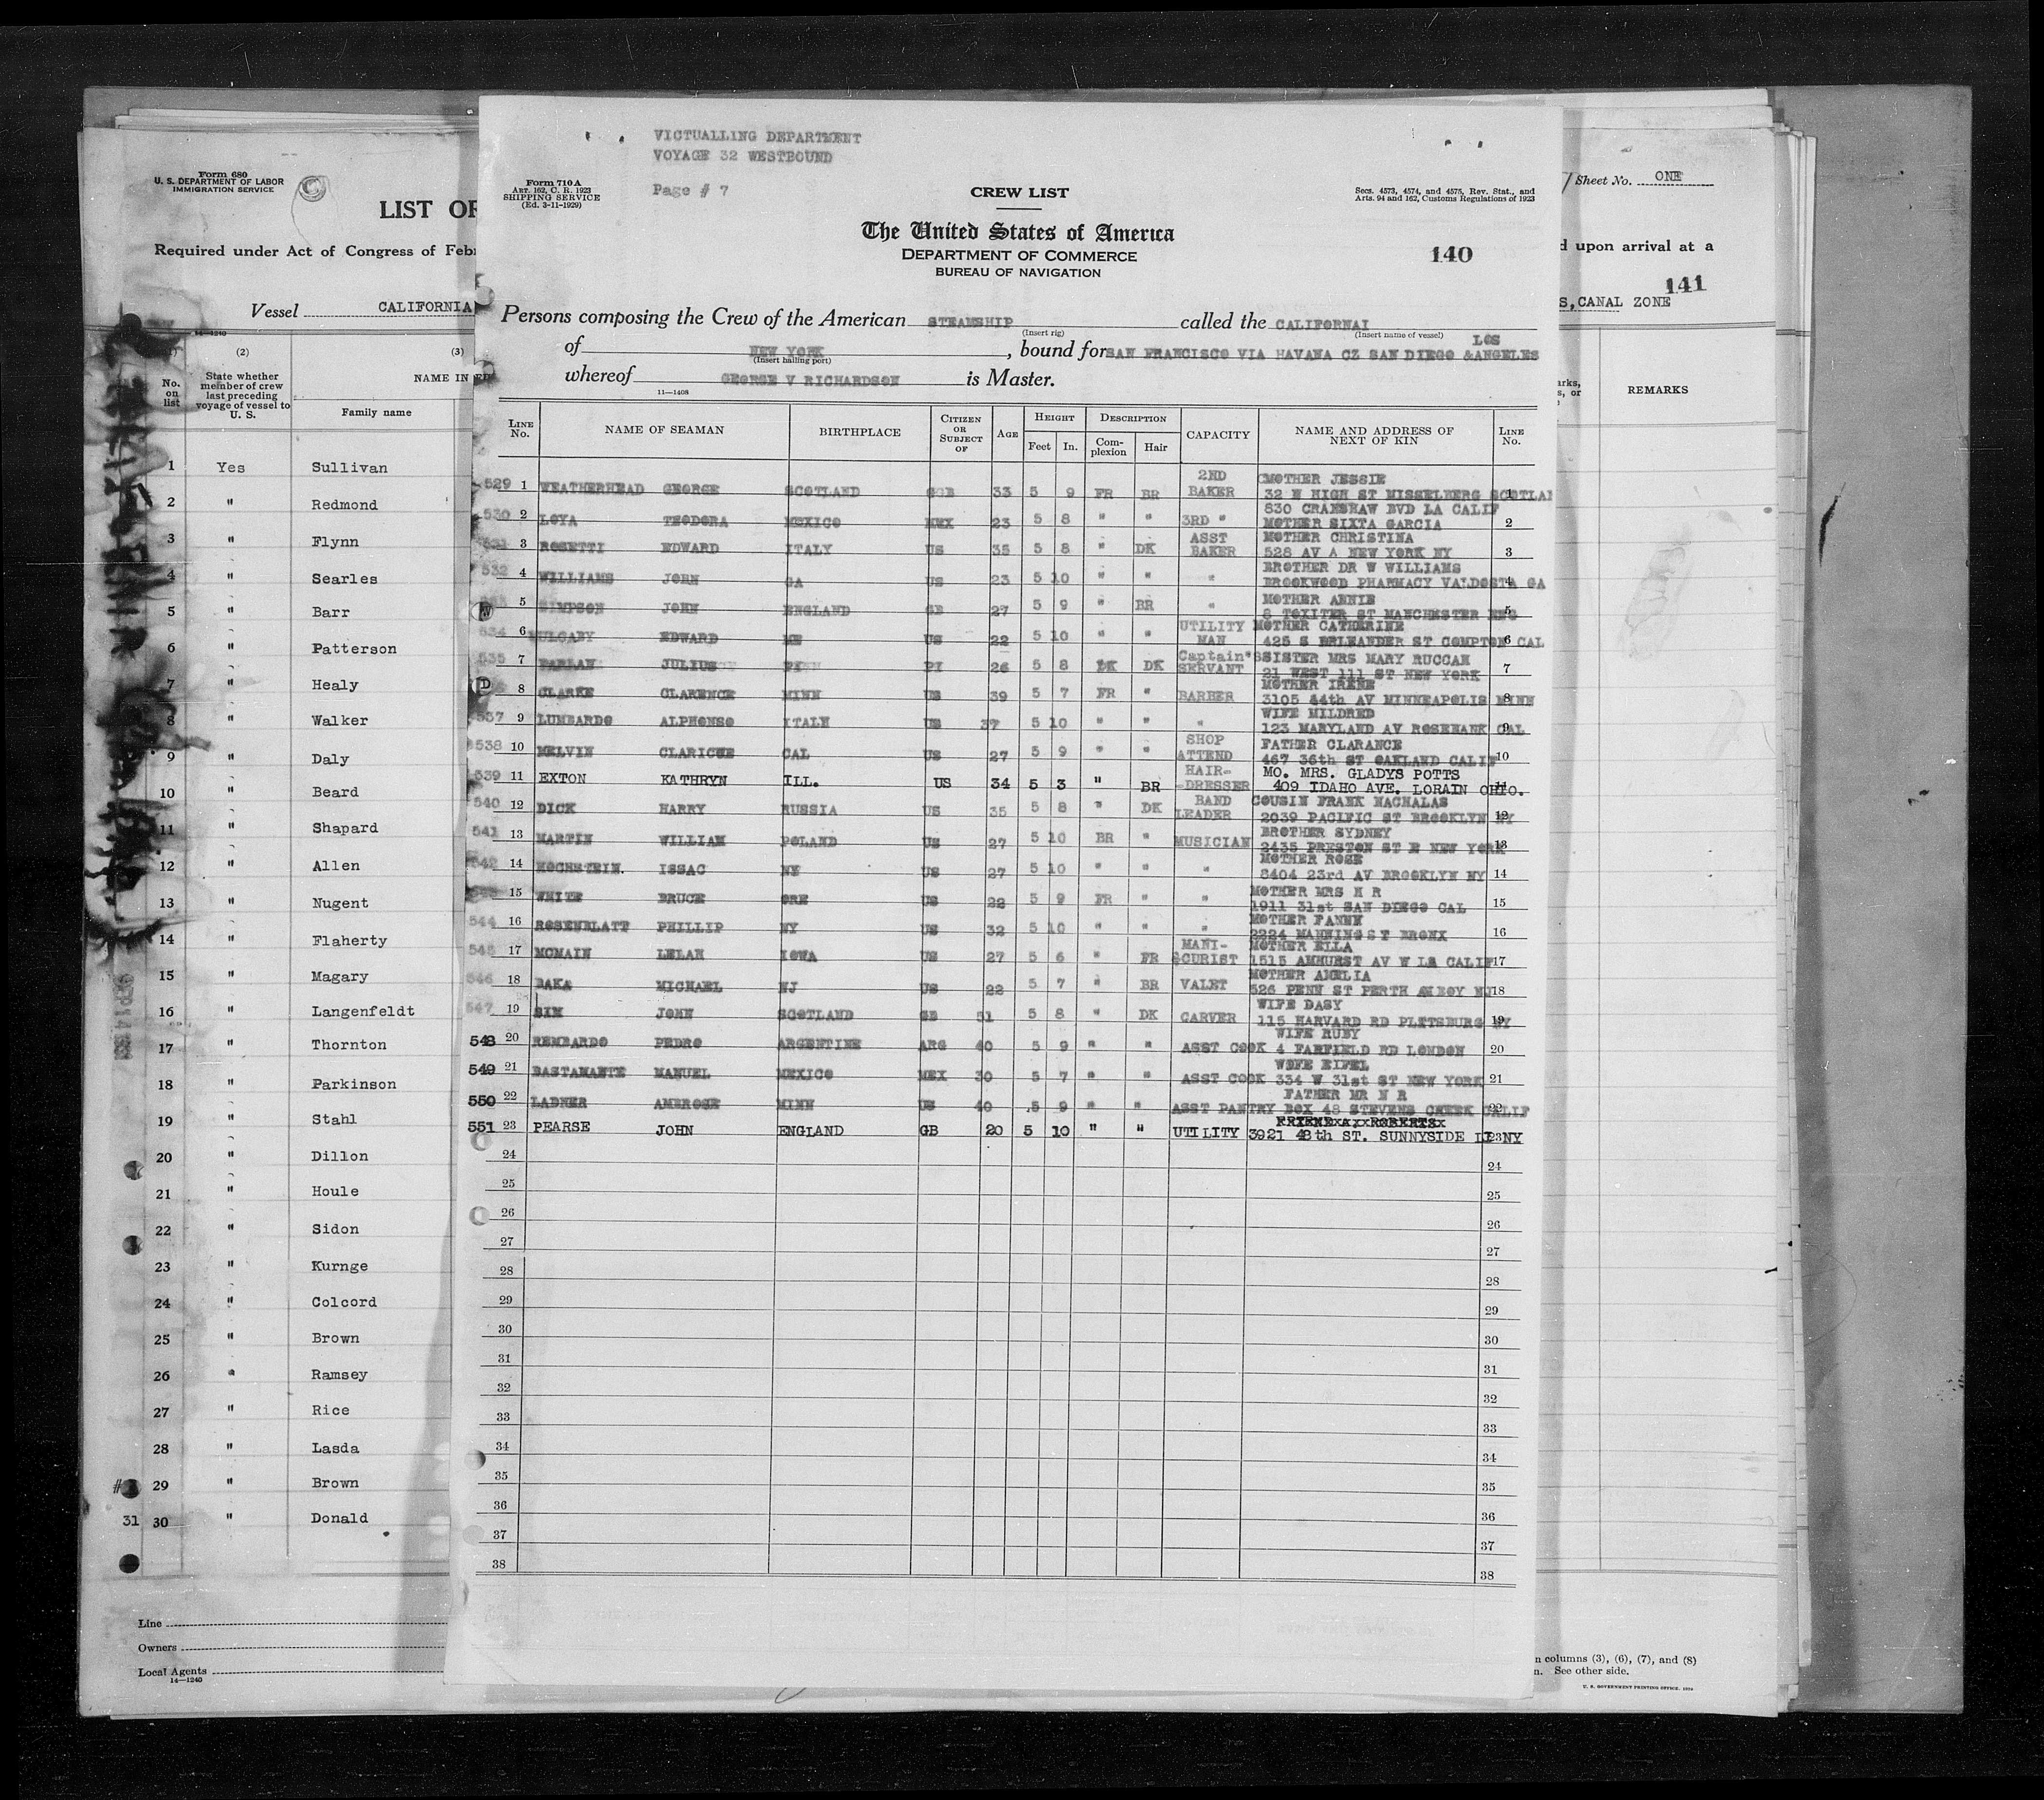 VICTUALLING DEPARTMENT
VOYAGE 32 WESTBOUND
Page # 7
Form 710 A
ART. 162, C. R. 1923
SHIPPING SERVICE
(Ed. 3-11-1929)
CREW LIST
Secs. 4573, 4574, and 4575, Rev. Stat., and
Arts. 94 and 162, Customs Regulations of 1923
The United States of America
DEPARTMENT OF COMMERCE
BUREAU OF NAVIGATION
140
Persons composing the Crew of the American STEAMSHIP called the CALIFORNAI
(Insert rig) (Insert name of vessel)
of NEW YORK, bound for SAN FRANCISCO VIA HAVANA CZ SAN DIEGO & LOS ANGELES
(Insert hailing port)
whereof GEORGE V RICHARDSON is Master.
11—1408
LINE No. NAME OF SEAMAN BIRTHPLACE CITIZEN OR SUBJECT OF AGE HEIGHT Feet In. DESCRIPTION Complexion Hair CAPACITY NAME AND ADDRESS OF NEXT OF KIN LINE No.
529 1 WEATHERHEAD GEORGE SCOTLAND 33 5 9 FR BR 2ND BAKER MOTHER JESSIE 32 N HIGH ST MISSELBERG SCOTLAN 1
530 2 LOYA TEODORA MEXICO MEX 23 5 8 " " 3RD " 830 CRANSHAW BVD LA CALIF MOTHER SIXTA GARCIA 2
531 3 ROSETTI EDWARD ITALY US 35 5 8 " DK ASST BAKER MOTHER CHRISTINA 528 AV A NEW YORK NY 3
532 4 WILLIAMS JOHN GA US 23 5 10 " " " BROTHER DR W WILLIAMS BROOKWOOD PHARMACY VALDOSTA GA 4
W 5 SIMPSON JOHN ENGLAND GB 27 5 9 " BR " MOTHER ANNIE 8 TOXITER ST MANCHESTER ENG 5
534 6 EDWARD US 22 5 10 " " UTILITY MAN MOTHER CATHERINE 425 S ST COMPTON CAL 6
535 7 JULIUS PI 26 5 8 DK DK Captain's SERVANT SISTER MRS MARY RUCCAH 21 WEST 111 ST NEW YORK 7
D 8 CLARKE CLARENCE MINN US 39 5 7 FR " BARBER MOTHER IRENE 3105 44th AV MINNEAPOLIS MINN 8
537 9 LUMBARDO ALPHONSO ITALY US 37 5 10 " " " WIFE MILDRED 123 MARYLAND AV ROSEBANK CAL 9
538 10 MELVIN US 27 5 9 " " SHOP ATTEND FATHER CLARANCE 467 36th ST OAKLAND CALIF 10
539 11 EXTON KATHRYN ILL. US 34 5 3 " BR HAIR-DRESSER MO. MRS. GLADYS POTTS 409 IDAHO AVE. LORAIN OHIO. 11
540 12 DICK HARRY RUSSIA US 35 5 8 " DK BAND LEADER COUSIN FRANK MACHALAS 2039 PACIFIC ST BROOKLYN NY 12
541 13 MARTIN WILLIAM POLAND US 27 5 10 BR " MUSICIAN BROTHER SYDNEY 2435 PRESTON ST E NEW YORK 13
542 14 HOCHSTEIN. ISSAC NY US 27 5 10 " " " MOTHER ROSE 8404 23rd AV BROOKLYN NY 14
15 WHITE BRUCE ORE US 22 5 9 FR " " MOTHER MRS H R 1911 31st SAN DIEGO CAL 15
544 16 ROSENBLATT PHILLIP NY US 32 5 10 " " " MOTHER FANNY 2224 MANNING ST BRONX 16
545 17 MCMAIN LELAH IOWA US 27 5 6 " FR MANI-CURIST MOTHER ELLA 1515 AMHURST AV W LA CALIF 17
546 18 BAKA MICHAEL NJ US 22 5 7 " BR VALET MOTHER AMELIA 526 PENN ST PERTH AMBOY NJ 18
547 19 SIM JOHN SCOTLAND GB 51 5 8 " DK CARVER WIFE DASY 115 HARVARD RD PLTTSBURG NY 19
548 20 REMBARDO PEDRO ARGENTINE ARG 40 5 9 " " ASST COOK WIFE RUBY 4 FARFIELD RD LONDON 20
549 21 BASTAMANTE MANUEL MEXICO MEX 30 5 7 " " ASST COOK WIFE EIFEL 334 W 31st ST NEW YORK 21
550 22 LADNER AMBROSE MINN US 40 5 9 " " ASST PANTRY FATHER MR N R BOX 48 STEVENS CREEK CALIF 22
551 23 PEARSE JOHN ENGLAND GB 20 5 10 " " UTILITY 3921 48th ST. SUNNYSIDE LI NY 23
24 24
25 25
26 26
27 27
28 28
29 29
30 30
31 31
32 32
33 33
34 34
35 35
36 36
37 37
38 38
Form 680
U. S. DEPARTMENT OF LABOR
IMMIGRATION SERVICE
LIST OF
Required under Act of Congress of Feb
Vessel CALIFORNIA
14—1240
(2) (3)
No. on list
State whether member of crew last preceding voyage of vessel to U. S.
NAME IN
Family name
1 Yes Sullivan
2 " Redmond
3 " Flynn
4 " Searles
5 " Barr
6 " Patterson
7 " Healy
8 " Walker
9 " Daly
10 " Beard
11 " Shapard
12 " Allen
13 " Nugent
14 " Flaherty
15 " Magary
16 " Langenfeldt
17 " Thornton
18 " Parkinson
19 " Stahl
20 " Dillon
21 " Houle
22 " Sidon
23 " Kurnge
24 " Colcord
25 " Brown
26 " Ramsey
27 " Rice
28 " Lasda
# 29 " Brown
31 30 " Donald
Line
Owners
Local Agents
14—1240
Sheet No. ONE
d upon arrival at a
141
S, CANAL ZONE
arks,
s, or
REMARKS
n columns (3), (6), (7), and (8)
n. See other side.
U. S. GOVERNMENT PRINTING OFFICE